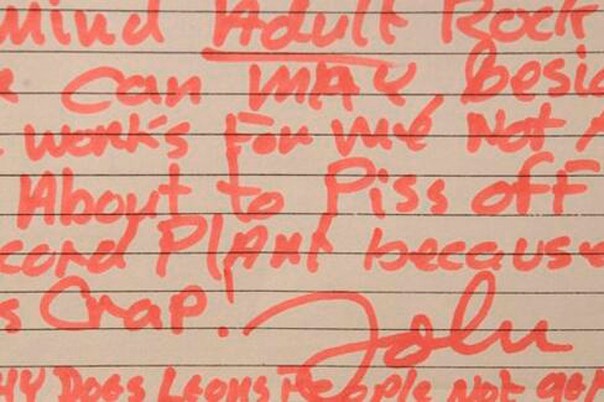 mind Adult Rock
Can MAY, besid
works For me Not
About to Piss off
cord PLANT because
s Crap! John
HY Does Leons People Not get